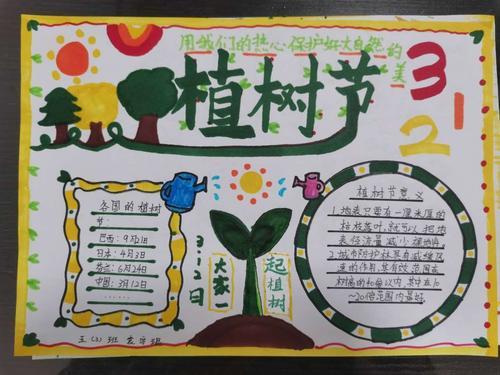 用我们的热心保护好大自然的美
植树节
3
12
各国的植树节:
巴西:9月21日
日本:4月3日
芬兰:6月24日
中国:3月12日
3.12日
大家一
起植树
植树节意义
1.地表只要有一厘米厚的
枯枝落叶,就可以把地
表径流量减少裸地的
2.城市防护林具有减缓风
速的作用,其有效范围在
树高的40倍以内,其中在10
~20倍范围内最好。
五(3)班